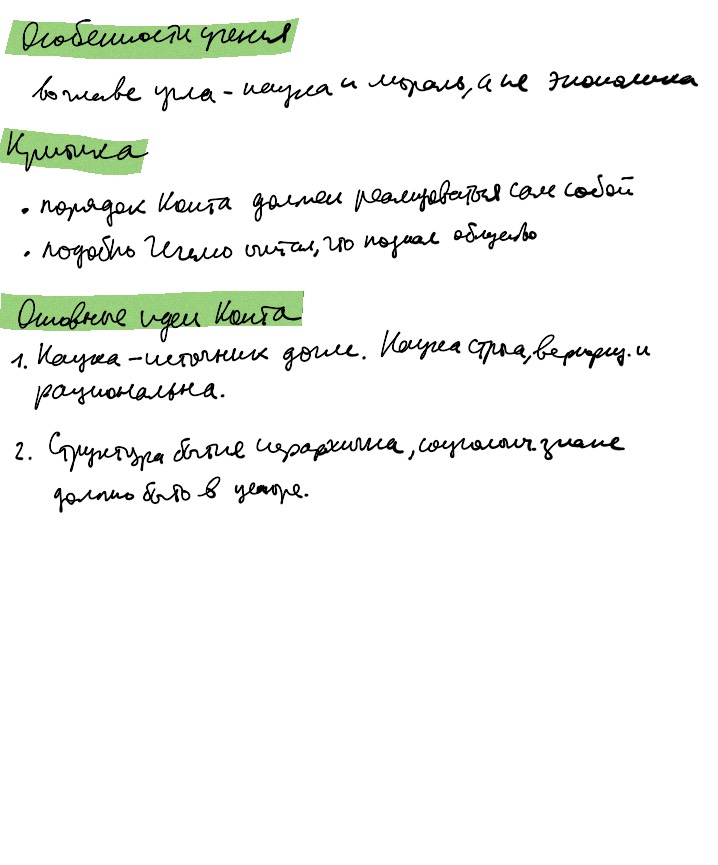 Особенности учения
во главе угла - наука и мораль, а не экономика
Критика
• порядок Конта должен реализоваться сам собой
• подобно Гегелю считал, что познал общество
Основные идеи Конта
1. Наука - источник догм. Наука строга, верифиц. и
рациональна.
2. Структура бытие иерархична, знание
должно быть в центре.